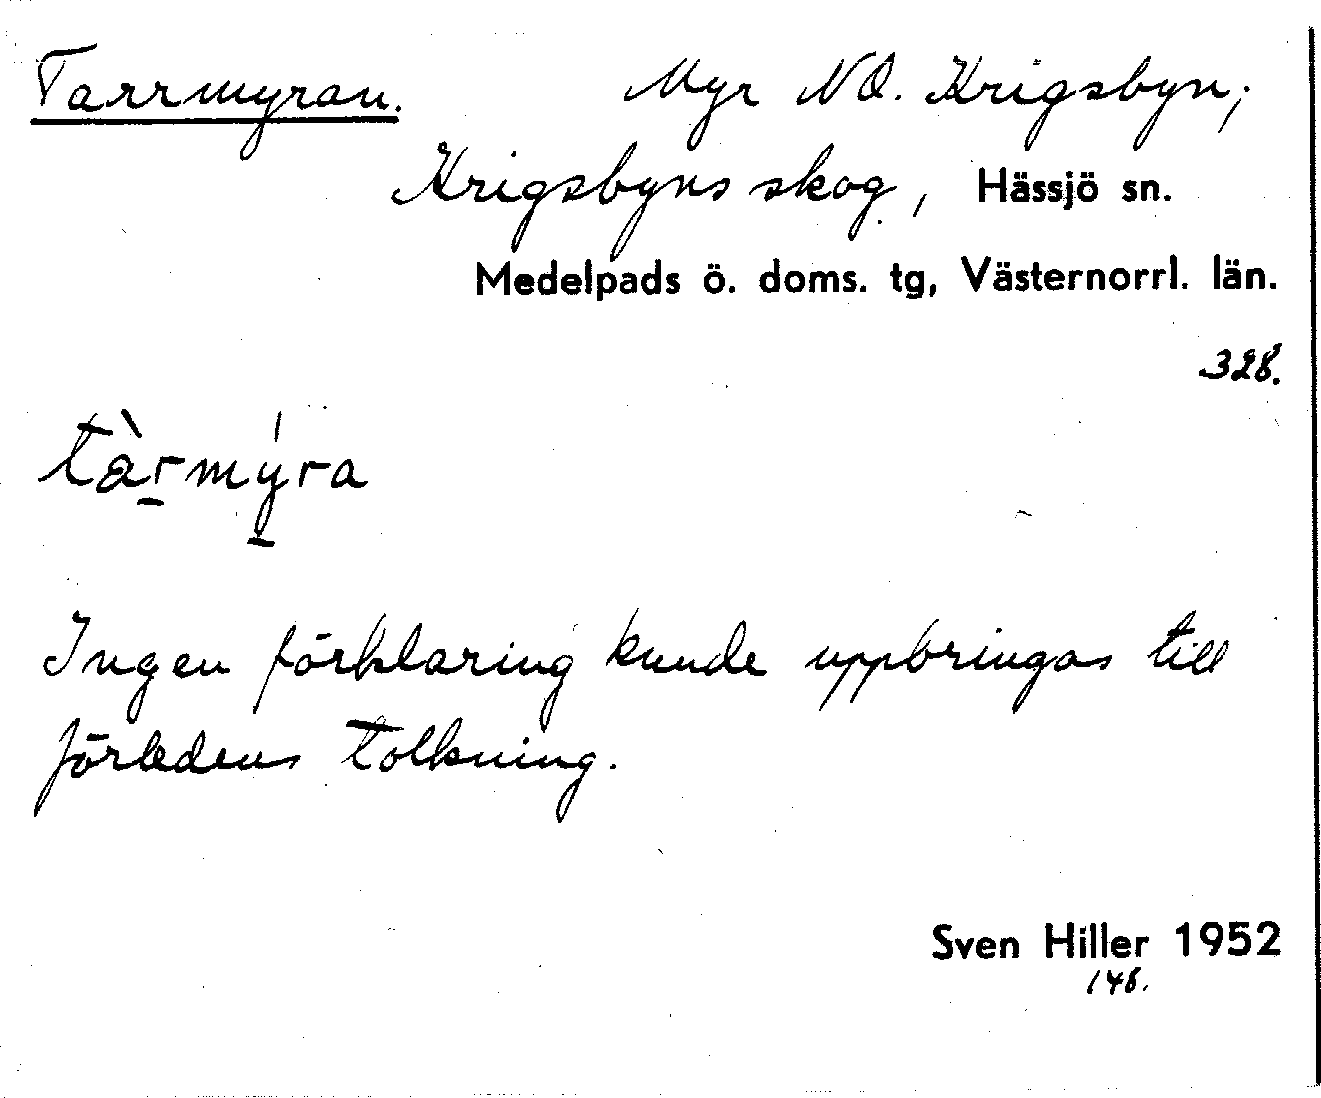 Tarrmyran. Myr NO. Krigsbyn;
Krigsbyns skog, Hässjö sn.
Medelpads ö. doms. tg, Västernorrl. län.
328.
tàrmýra
Ingen förklaring kunde uppbringas till
förledens tolkning.
Sven Hiller 1952